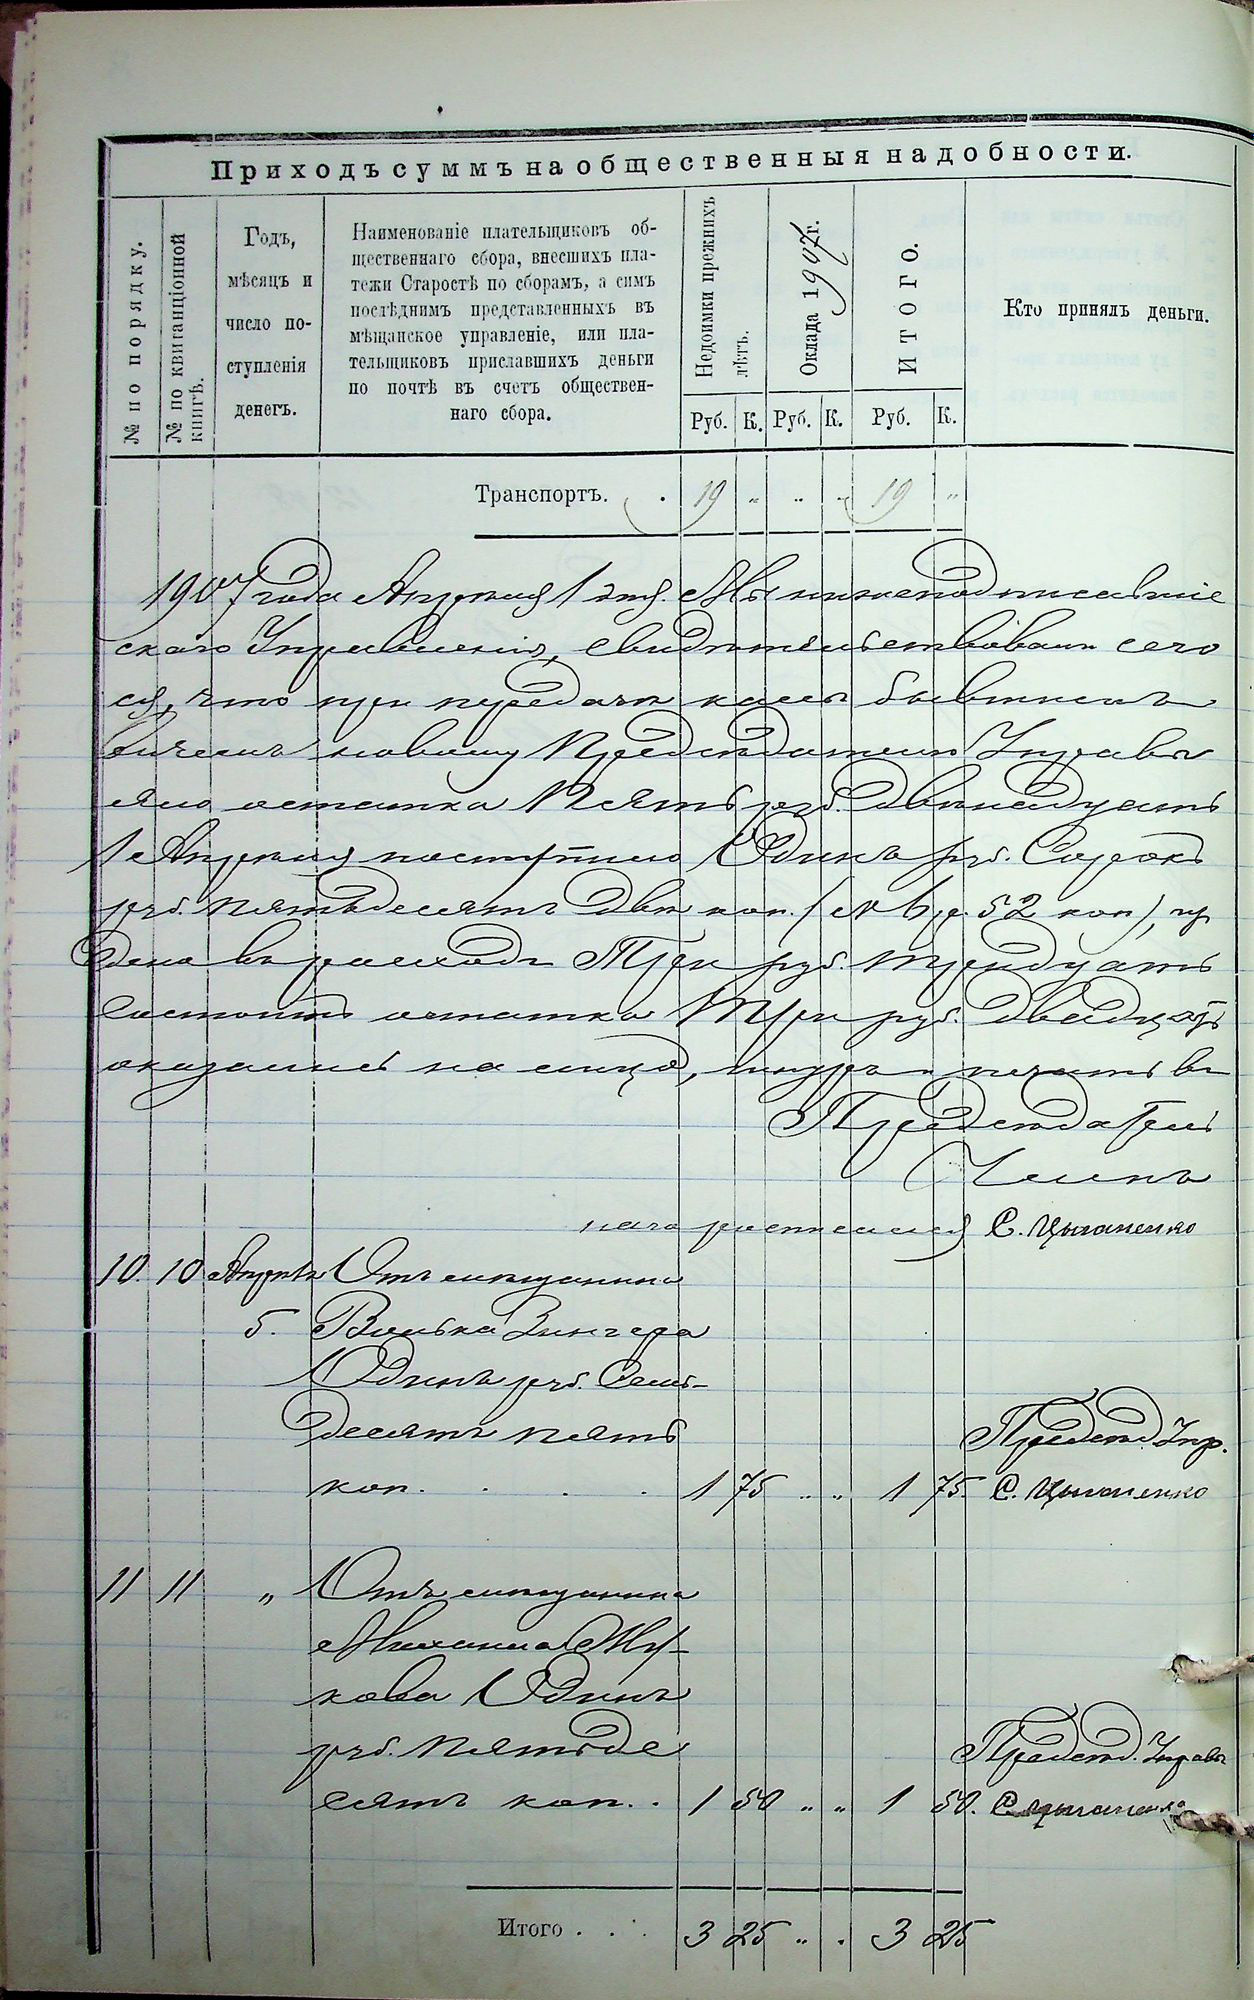 Приходъ суммъ на общественныя надобности.
№ по порядку.
№ по квитанціонной книгѣ.
Годъ,
мѣсяцъ и
число по-
ступленія
денегъ.
Наименованіе плательщиковъ об-
щественнаго сбора, внесшихъ пла-
тежи Старостѣ по сборамъ, а симъ
послѣднимъ представленныхъ въ
мѣщанское управленіе, или пла-
тельщиковъ приславшихъ деньги
по почтѣ въ счетъ обществен-
наго сбора.
Недоимки прежнихъ лѣтъ.
Оклада 1907 г.
Итого.
Кто принялъ деньги.
Руб. К. Руб. К. Руб. К.
Транспортъ. . 19 „ „ „ 19 „
1907 года Апрѣля 1 дня. Мы нижеподписавшіе
скаго Управленія, свидѣтельствовали сего
ся, что при передачѣ кассы бывшимъ
вичемъ новому Предсѣдателю Управы
яло остатка Пять руб. двѣнадцать
1 Апрѣля поступило Одинъ руб. Сорокъ
руб. Пятьдесятъ двѣ коп. (6 р. 52 коп),
дено въ расходъ Три руб. тридцать
состоитъ остатка Три руб. двадцать
оказались на лицо, шнуръ и печать въ
Предсѣдатель
Члены
С. Цыганенко
10. 10 Апрѣля Отъ мѣщанина
5. Волька Зингера
Одинъ руб. Семь-
десятъ пять
коп. . . . . 1 75 „ „ 1 75.
Предсѣд. Упр.
С. Цыганенко
11 11 „ Отъ мѣщанина
Михаила Жу-
кова Одинъ
руб. Пятьде
сятъ коп. . 1 50 „ „ 1 50.
Предсѣд. Управы
С. Цыганенко
Итого . . . 3 25 „ . 3 25